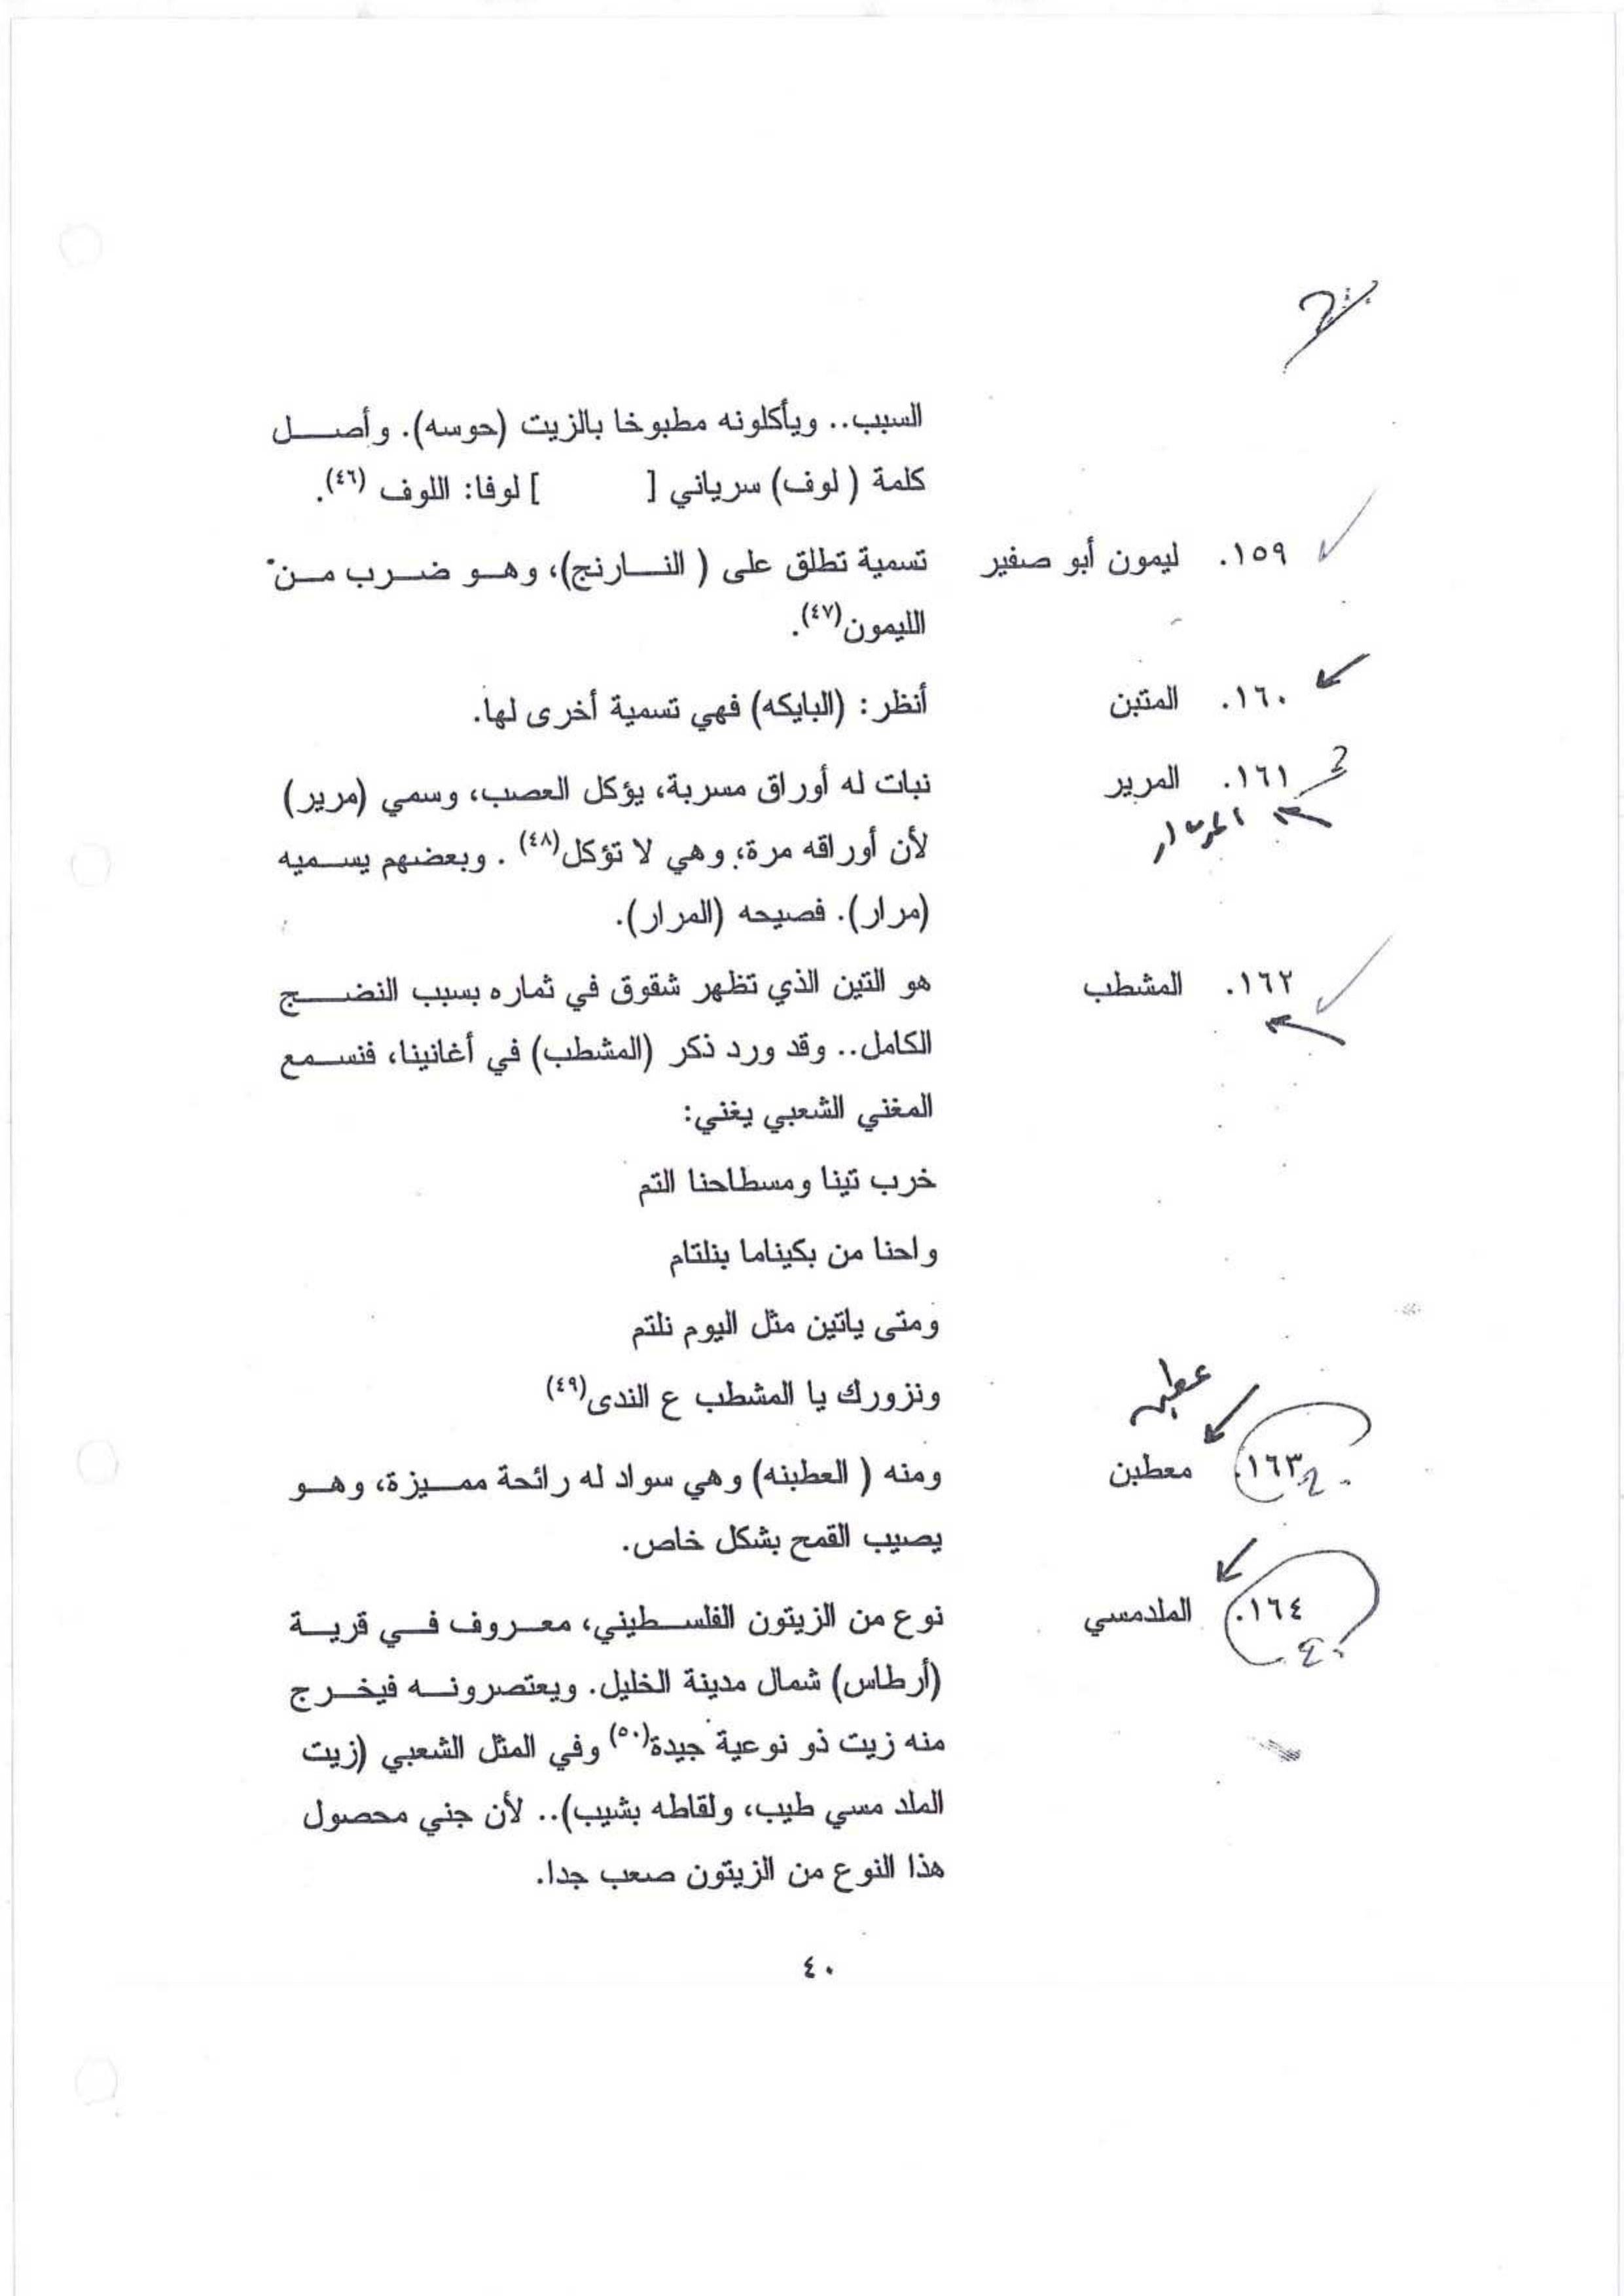 السبب.. ويأكلونه مطبوخا بالزيت (حوسه). وأصل
كلمة ( لوف) سرياني [ ] لوفا: اللوف (٤٦).
١٥٩. ليمون أبو صفير تسمية تطلق على ( النارنج)، وهو ضرب من
الليمون(٤٧).
١٦٠. المتبن أنظر: (البايكه) فهي تسمية أخرى لها.
١٦١. المرير نبات له أوراق مسربة، يؤكل العصب، وسمي (مرير)
المرار لأن أوراقه مرة، وهي لا تؤكل(٤٨) . وبعضهم يسميه
(مرار). فصيحه (المرار).
١٦٢. المشطب هو التين الذي تظهر شقوق في ثماره بسبب النضج
الكامل.. وقد ورد ذكر (المشطب) في أغانينا، فنسمع
المغني الشعبي يغني:
خرب تينا ومسطاحنا التم
واحنا من بكيناما بنلتام
ومتى ياتين مثل اليوم نلتم
ونزورك يا المشطب ع الندى(٤٩)
١٦٣. معطبن ومنه ( العطبنه) وهي سواد له رائحة مميزة، وهو
يصيب القمح بشكل خاص.
١٦٤. الملدمسي نوع من الزيتون الفلسطيني، معروف في قرية
(أرطاس) شمال مدينة الخليل. ويعتصرونه فيخرج
منه زيت ذو نوعية جيدة(٥٠) وفي المثل الشعبي (زيت
الملد مسي طيب، ولقاطه بشيب).. لأن جني محصول
هذا النوع من الزيتون صعب جدا.
٤٠